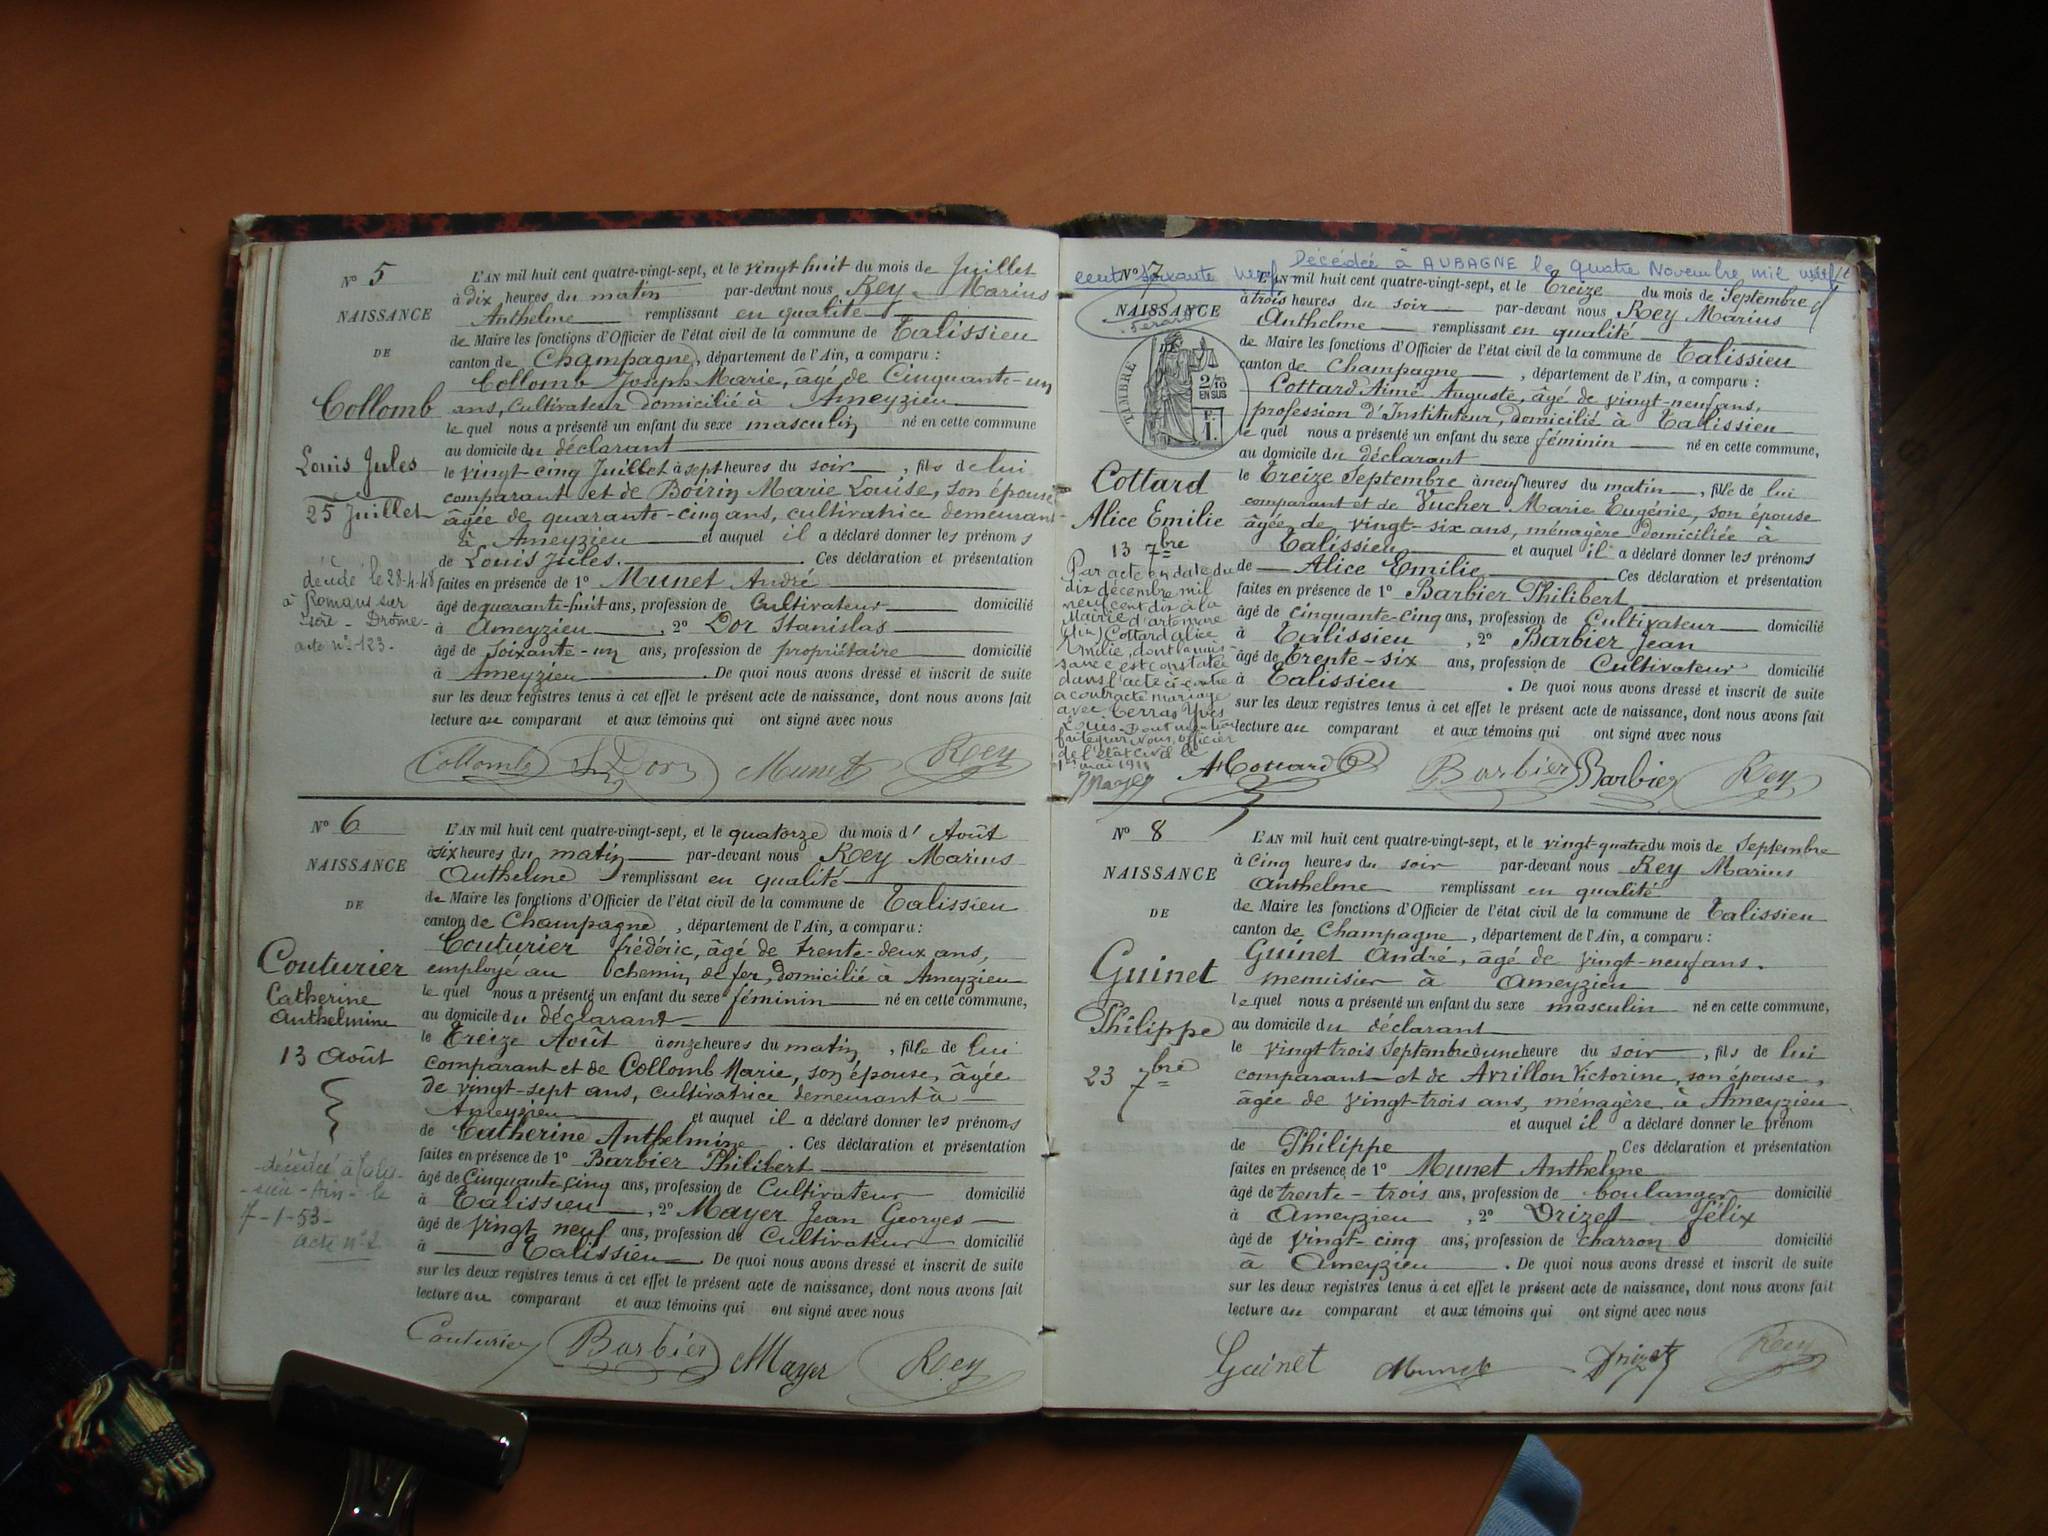 N° 5
NAISSANCE
DE
Collomb
Louis Jules
25 Juillet
décédé le 28-4-48
à Romans sur
Isère - Drôme -
acte n° 123.
L'AN mil huit cent quatre-vingt-sept, et le vingt huit du mois de Juillet
à dix heures du matin par-devant nous Rey Marius
Anthelme remplissant en qualité
de Maire les fonctions d'Officier de l'état civil de la commune de Talissieu
canton de Champagne, département de l'Ain, a comparu :
Collomb Joseph Marie, âgé de Cinquante-un
ans, Cultivateur domicilié à Ameyzieu
le quel nous a présenté un enfant du sexe masculin né en cette commune
au domicile du déclarant
le vingt-cinq Juillet à sept heures du soir, fils de lui
comparant et de Boirin Marie Louise, son épouse
âgée de quarante-cinq ans, cultivatrice demeurant
à Ameyzieu et auquel il a déclaré donner les prénoms
de Louis Jules. Ces déclaration et présentation
faites en présence de 1° Munet André
âgé de quarante-huit ans, profession de Cultivateur domicilié
à Ameyzieu, 2° Dor Stanislas
âgé de Soixante-un ans, profession de propriétaire domicilié
à Ameyzieu. De quoi nous avons dressé et inscrit de suite
sur les deux registres tenus à cet effet le présent acte de naissance, dont nous avons fait
lecture au comparant et aux témoins qui ont signé avec nous
Collomb Dor Munet Rey
N° 6
NAISSANCE
DE
Couturier
Catherine
Anthelmine
13 Août
décédée à Talis-
sieu - Ain - le
7-1-53-
acte n° 2
L'AN mil huit cent quatre-vingt-sept, et le quatorze du mois d' Août
à six heures du matin par-devant nous Rey Marius
Anthelme remplissant en qualité
de Maire les fonctions d'Officier de l'état civil de la commune de Talissieu
canton de Champagne, département de l'Ain, a comparu :
Couturier frédéric, âgé de trente-deux ans,
employé au chemin de fer, domicilié à Ameyzieu
le quel nous a présenté un enfant du sexe féminin né en cette commune,
au domicile du déclarant
le Treize Août à onze heures du matin, fille de lui
comparant et de Collomb Marie, son épouse, âgée
de vingt-sept ans, cultivatrice demeurant à
Ameyzieu et auquel il a déclaré donner les prénoms
de Catherine Anthelmine. Ces déclaration et présentation
faites en présence de 1° Barbier Philibert
âgé de Cinquante cinq ans, profession de Cultivateur domicilié
à Talissieu, 2° Mayer Jean Georges
âgé de vingt neuf ans, profession de Cultivateur domicilié
à Talissieu. De quoi nous avons dressé et inscrit de suite
sur les deux registres tenus à cet effet le présent acte de naissance, dont nous avons fait
lecture au comparant et aux témoins qui ont signé avec nous
Couturier Barbier Mayer Rey
Décédée à AUBAGNE le quatre Novembre mil neuf
cent soixante neuf
N° 7
NAISSANCE
TIMBRE
2/10
EN SUS
Cottard
Alice Emilie
13 7bre
Par acte en date du
dix décembre mil
neuf cent dix à la
Mairie d'artemare
(Ain) Cottard Alice
Emilie, dont la nais-
sance est constatée
dans l'acte ci-contre
a contracté mariage
avec Terras Yves
Louis. Dont mention
faite par nous officier
de l'état civil le
1er mai 1911
Mayer
L'AN mil huit cent quatre-vingt-sept, et le Treize du mois de Septembre
à trois heures du soir par-devant nous Rey Marius
Anthelme remplissant en qualité
de Maire les fonctions d'Officier de l'état civil de la commune de Talissieu
canton de Champagne, département de l'Ain, a comparu :
Cottard Aimé Auguste, âgé de vingt-neuf ans,
profession d'Instituteur, domicilié à Talissieu
le quel nous a présenté un enfant du sexe féminin né en cette commune,
au domicile du déclarant
le Treize Septembre à neuf heures du matin, fille de lui
comparant et de Vucher Marie Eugénie, son épouse
âgée de vingt-six ans, ménagère domiciliée à
Talissieu et auquel il a déclaré donner les prénoms
de Alice Emilie Ces déclaration et présentation
faites en présence de 1° Barbier Philibert
âgé de cinquante-cinq ans, profession de Cultivateur domicilié
à Talissieu, 2° Barbier Jean
âgé de Trente-six ans, profession de Cultivateur domicilié
à Talissieu. De quoi nous avons dressé et inscrit de suite
sur les deux registres tenus à cet effet le présent acte de naissance, dont nous avons fait
lecture au comparant et aux témoins qui ont signé avec nous
A Cottard Barbier Barbier Rey
N° 8
NAISSANCE
DE
Guinet
Philippe
23 7bre
L'AN mil huit cent quatre-vingt-sept, et le vingt-quatre du mois de Septembre
à Cinq heures du soir par-devant nous Rey Marius
Anthelme remplissant en qualité
de Maire les fonctions d'Officier de l'état civil de la commune de Talissieu
canton de Champagne, département de l'Ain, a comparu :
Guinet André, âgé de vingt-neuf ans.
menuisier à Ameyzieu
le quel nous a présenté un enfant du sexe masculin né en cette commune,
au domicile du déclarant
le vingt-trois Septembre à une heure du soir, fils de lui
comparant et de Avrillon Victorine, son épouse,
âgée de vingt-trois ans, ménagère à Ameyzieu
et auquel il a déclaré donner le prénom
de Philippe. Ces déclaration et présentation
faites en présence de 1° Munet Anthelme
âgé de trente-trois ans, profession de boulanger domicilié
à Ameyzieu, 2° Drizet félix
âgé de vingt-cinq ans, profession de charron domicilié
à Ameyzieu. De quoi nous avons dressé et inscrit de suite
sur les deux registres tenus à cet effet le présent acte de naissance, dont nous avons fait
lecture au comparant et aux témoins qui ont signé avec nous
Guinet Munet Drizet Rey